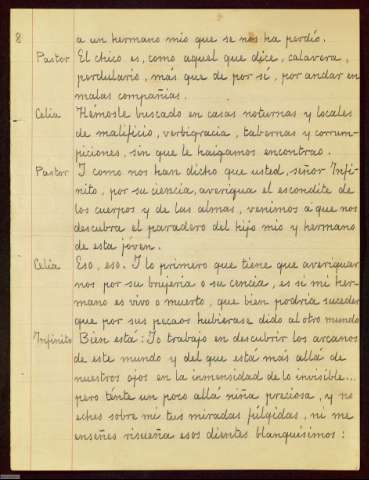 8 a un hermano mio que se nos ha perdío.
Pastor El chico es, como aquel que dice, calavera,
perdulario, más que de por sí, por andar en
malas compañias.
Celia Hémosle buscado en casas noturnas y locales
de malificio, verbigracia, tabernas y corrum-
piciones, sin que le haigamos encontrao.
Pastor Y como nos han dicho que usted, señor Infi-
nito, por su ciencia, averigua el escondite de
los cuerpos y de las almas, venimos a que nos
descubra el paradero del hijo mio y hermano
de esta jóven.
Celia Eso, eso. Y lo primero que tiene que averiguar
nos por su brujería o su cencia, es si mi her-
mano es vivo o muerto, que bien podria suceder
que por sus pecaos hubierase dido al otro mundo
Infinito Bien está: Yo trabajo en descubrir los arcanos
de este mundo y del que está más allá de
nuestros ojos en la inmensidad de lo invisible...
pero ténte un poco allá niña preciosa, y no
eches sobre mi tus miradas fúlgidas, ni me
enseñes risueña esos dientes blanquísimos: